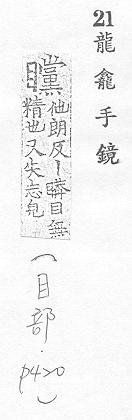 21龍龕手鏡
矘他朗反丨矋目無
精也又失志皃
(目部.
p420)